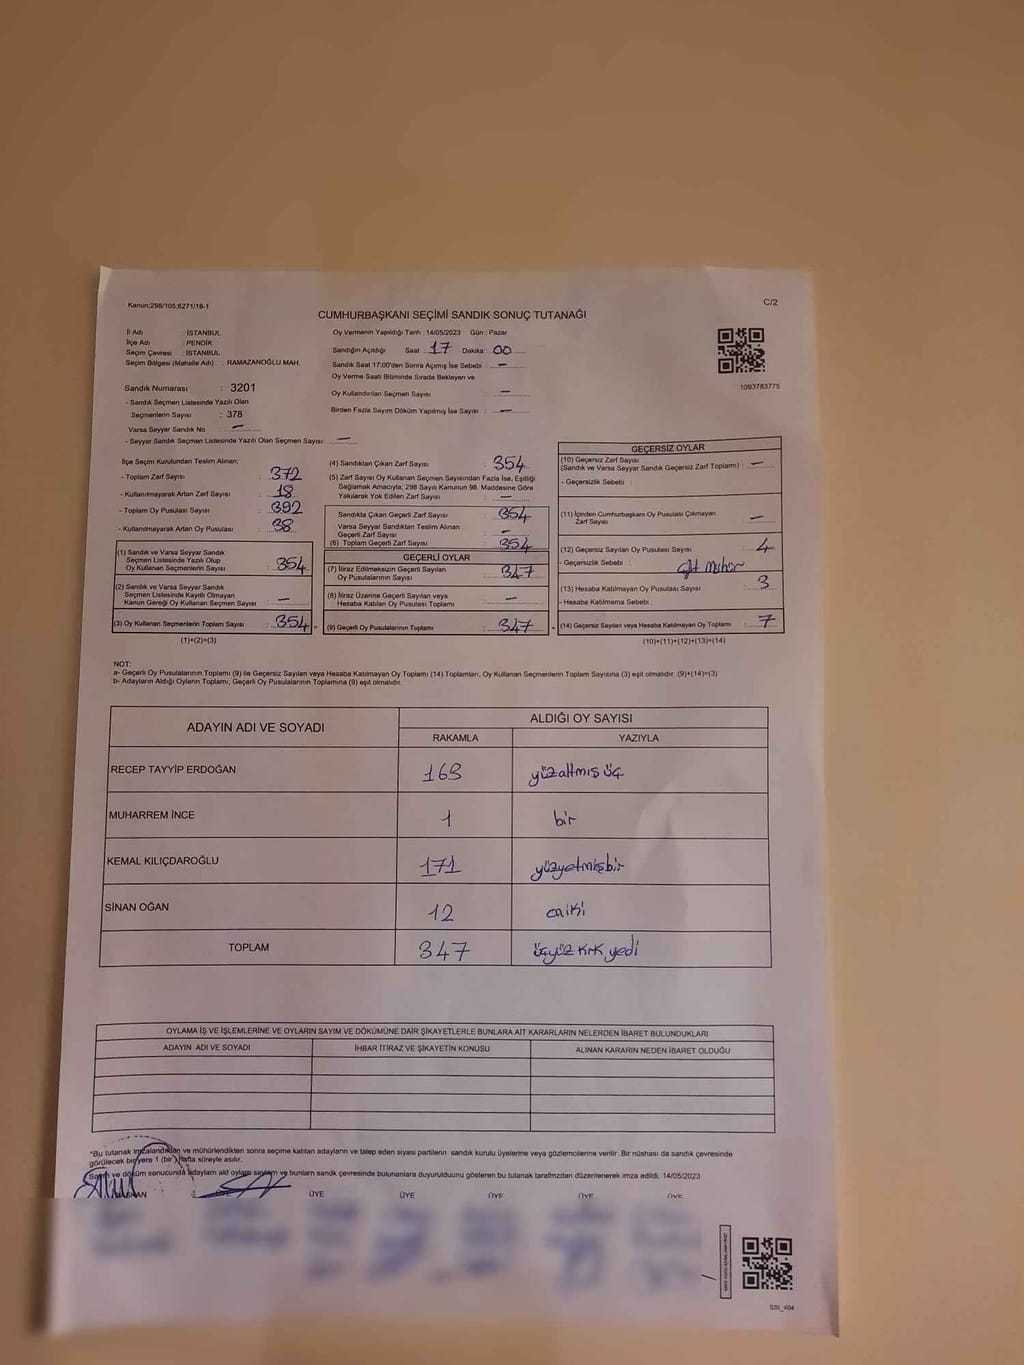 Kanun:298/105;6271/18-1
C/2
CUMHURBAŞKANI SEÇİMİ SANDIK SONUÇ TUTANAĞI
İl Adı : İSTANBUL
İlçe Adı : PENDİK
Seçim Çevresi : İSTANBUL
Seçim Bölgesi (Mahalle Adı) : RAMAZANOĞLU MAH.
Sandık Numarası : 3201
- Sandık Seçmen Listesinde Yazılı Olan
Seçmenlerin Sayısı : 378
Varsa Seyyar Sandık No : —
- Seyyar Sandık Seçmen Listesinde Yazılı Olan Seçmen Sayısı : —
Oy Vermenin Yapıldığı Tarih : 14/05/2023 Gün : Pazar
Sandığın Açıldığı Saat : 17 Dakika : 00
Sandık Saat 17:00'den Sonra Açımış İse Sebebi : —
Oy Verme Saati Bitiminde Sırada Bekleyen ve
Oy Kullandırılan Seçmen Sayısı : —
Birden Fazla Sayım Döküm Yapılmış İse Sayısı : —
1093763775
İlçe Seçim Kurulundan Teslim Alınan;
- Toplam Zarf Sayısı : 372
- Kullanılmayarak Artan Zarf Sayısı : 18
- Toplam Oy Pusulası Sayısı : 392
- Kullanılmayarak Artan Oy Pusulası : 38
(1) Sandık ve Varsa Seyyar Sandık
Seçmen Listesinde Yazılı Olup
Oy Kullanan Seçmenlerin Sayısı : 354
(2) Sandık ve Varsa Seyyar Sandık
Seçmen Listesinde Kayıtlı Olmayan
Kanun Gereği Oy Kullanan Seçmen Sayısı : —
(3) Oy Kullanan Seçmenlerin Toplam Sayısı : 354
(1)+(2)=(3)
(4) Sandıktan Çıkan Zarf Sayısı : 354
(5) Zarf Sayısı Oy Kullanan Seçmen Sayısından Fazla İse, Eşitliği
Sağlamak Amacıyla; 298 Sayılı Kanunun 98. Maddesine Göre
Yakılarak Yok Edilen Zarf Sayısı : —
Sandıkta Çıkan Geçerli Zarf Sayısı : 354
Varsa Seyyar Sandıktan Teslim Alınan
Geçerli Zarf Sayısı : —
(6) Toplam Geçerli Zarf Sayısı : 354
GEÇERLİ OYLAR
(7) İtiraz Edilmeksizin Geçerli Sayılan
Oy Pusulalarının Sayısı : 347
(8) İtiraz Üzerine Geçerli Sayılan veya
Hesaba Katılan Oy Pusulası Toplamı : —
(9) Geçerli Oy Pusulalarının Toplamı : 347
GEÇERSİZ OYLAR
(10) Geçersiz Zarf Sayısı
(Sandık ve Varsa Seyyar Sandık Geçersiz Zarf Toplamı) : —
- Geçersizlik Sebebi :
(11) İçinden Cumhurbaşkanı Oy Pusulası Çıkmayan
Zarf Sayısı : —
(12) Geçersiz Sayılan Oy Pusulası Sayısı : 4
- Geçersizlik Sebebi : çift mühür
(13) Hesaba Katılmayan Oy Pusulası Sayısı : 3
- Hesaba Katılmama Sebebi :
(14) Geçersiz Sayılan veya Hesaba Katılmayan Oy Toplamı : 7
(10)+(11)+(12)+(13)=(14)
NOT:
a- Geçerli Oy Pusulalarının Toplamı (9) ile Geçersiz Sayılan veya Hesaba Katılmayan Oy Toplamı (14) Toplamları, Oy Kullanan Seçmenlerin Toplam Sayısına (3) eşit olmalıdır. (9)+(14)=(3)
b- Adayların Aldığı Oyların Toplamı, Geçerli Oy Pusulalarının Toplamına (9) eşit olmalıdır.
ADAYIN ADI VE SOYADI
ALDIĞI OY SAYISI
RAKAMLA YAZIYLA
RECEP TAYYİP ERDOĞAN 163 yüzaltmış üç
MUHARREM İNCE 1 bir
KEMAL KILIÇDAROĞLU 171 yüzyetmişbir
SİNAN OĞAN 12 oniki
TOPLAM 347 üçyüz kırk yedi
OYLAMA İŞ VE İŞLEMLERİNE VE OYLARIN SAYIM VE DÖKÜMÜNE DAİR ŞİKAYETLERLE BUNLARA AİT KARARLARIN NELERDEN İBARET BULUNDUKLARI
ADAYIN ADI VE SOYADI İHBAR İTİRAZ VE ŞİKAYETİN KONUSU ALINAN KARARIN NEDEN İBARET OLDUĞU
"Bu tutanak imzalandıktan ve mühürlendikten sonra seçime katılan adayların ve talep eden siyasi partilerin sandık kurulu üyelerine veya gözlemcilerine verilir. Bir nüshası da sandık çevresinde
görülecek bir yere 1 (bir) Hafta süreyle asılır.
Sayım ve döküm sonucunda adayların ald oyların sayısını ve bunların sandık çevresinde bulunanlara duyurulduunu gösteren bu tutanak tarafımızdan düzenlenerek imza edildi. 14/05/2023
BAŞKAN ÜYE ÜYE ÜYE ÜYE ÜYE ÜYE
SSI_404